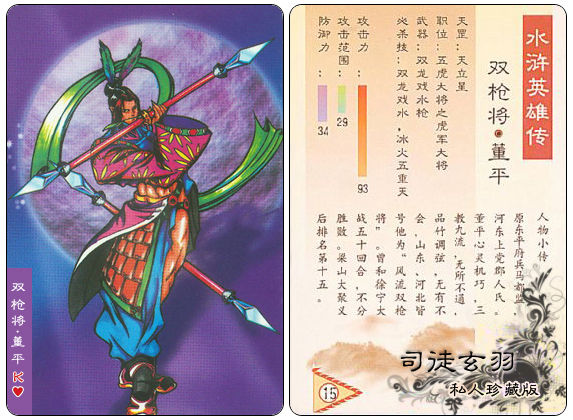 双枪将·董平
K
水浒英雄传
双枪将·董平
天罡：天立星
职位：五虎大将之虎军大将
武器：双龙戏水枪
必杀技：双龙戏水，冰火五重天
攻击力：
93
攻击范围：
29
防御力：
34
人物小传
原东平府兵马都监，
河东上党郡人氏。
董平心灵机巧，三
教九流，无所不通，
品竹调弦，无有不
会，山东、河北皆
号他为“风流双枪
将”。曾和徐宁大
战五十回合，不分
胜败。梁山大聚义
后排名第十五。
15
司徒玄羽
私人珍藏版